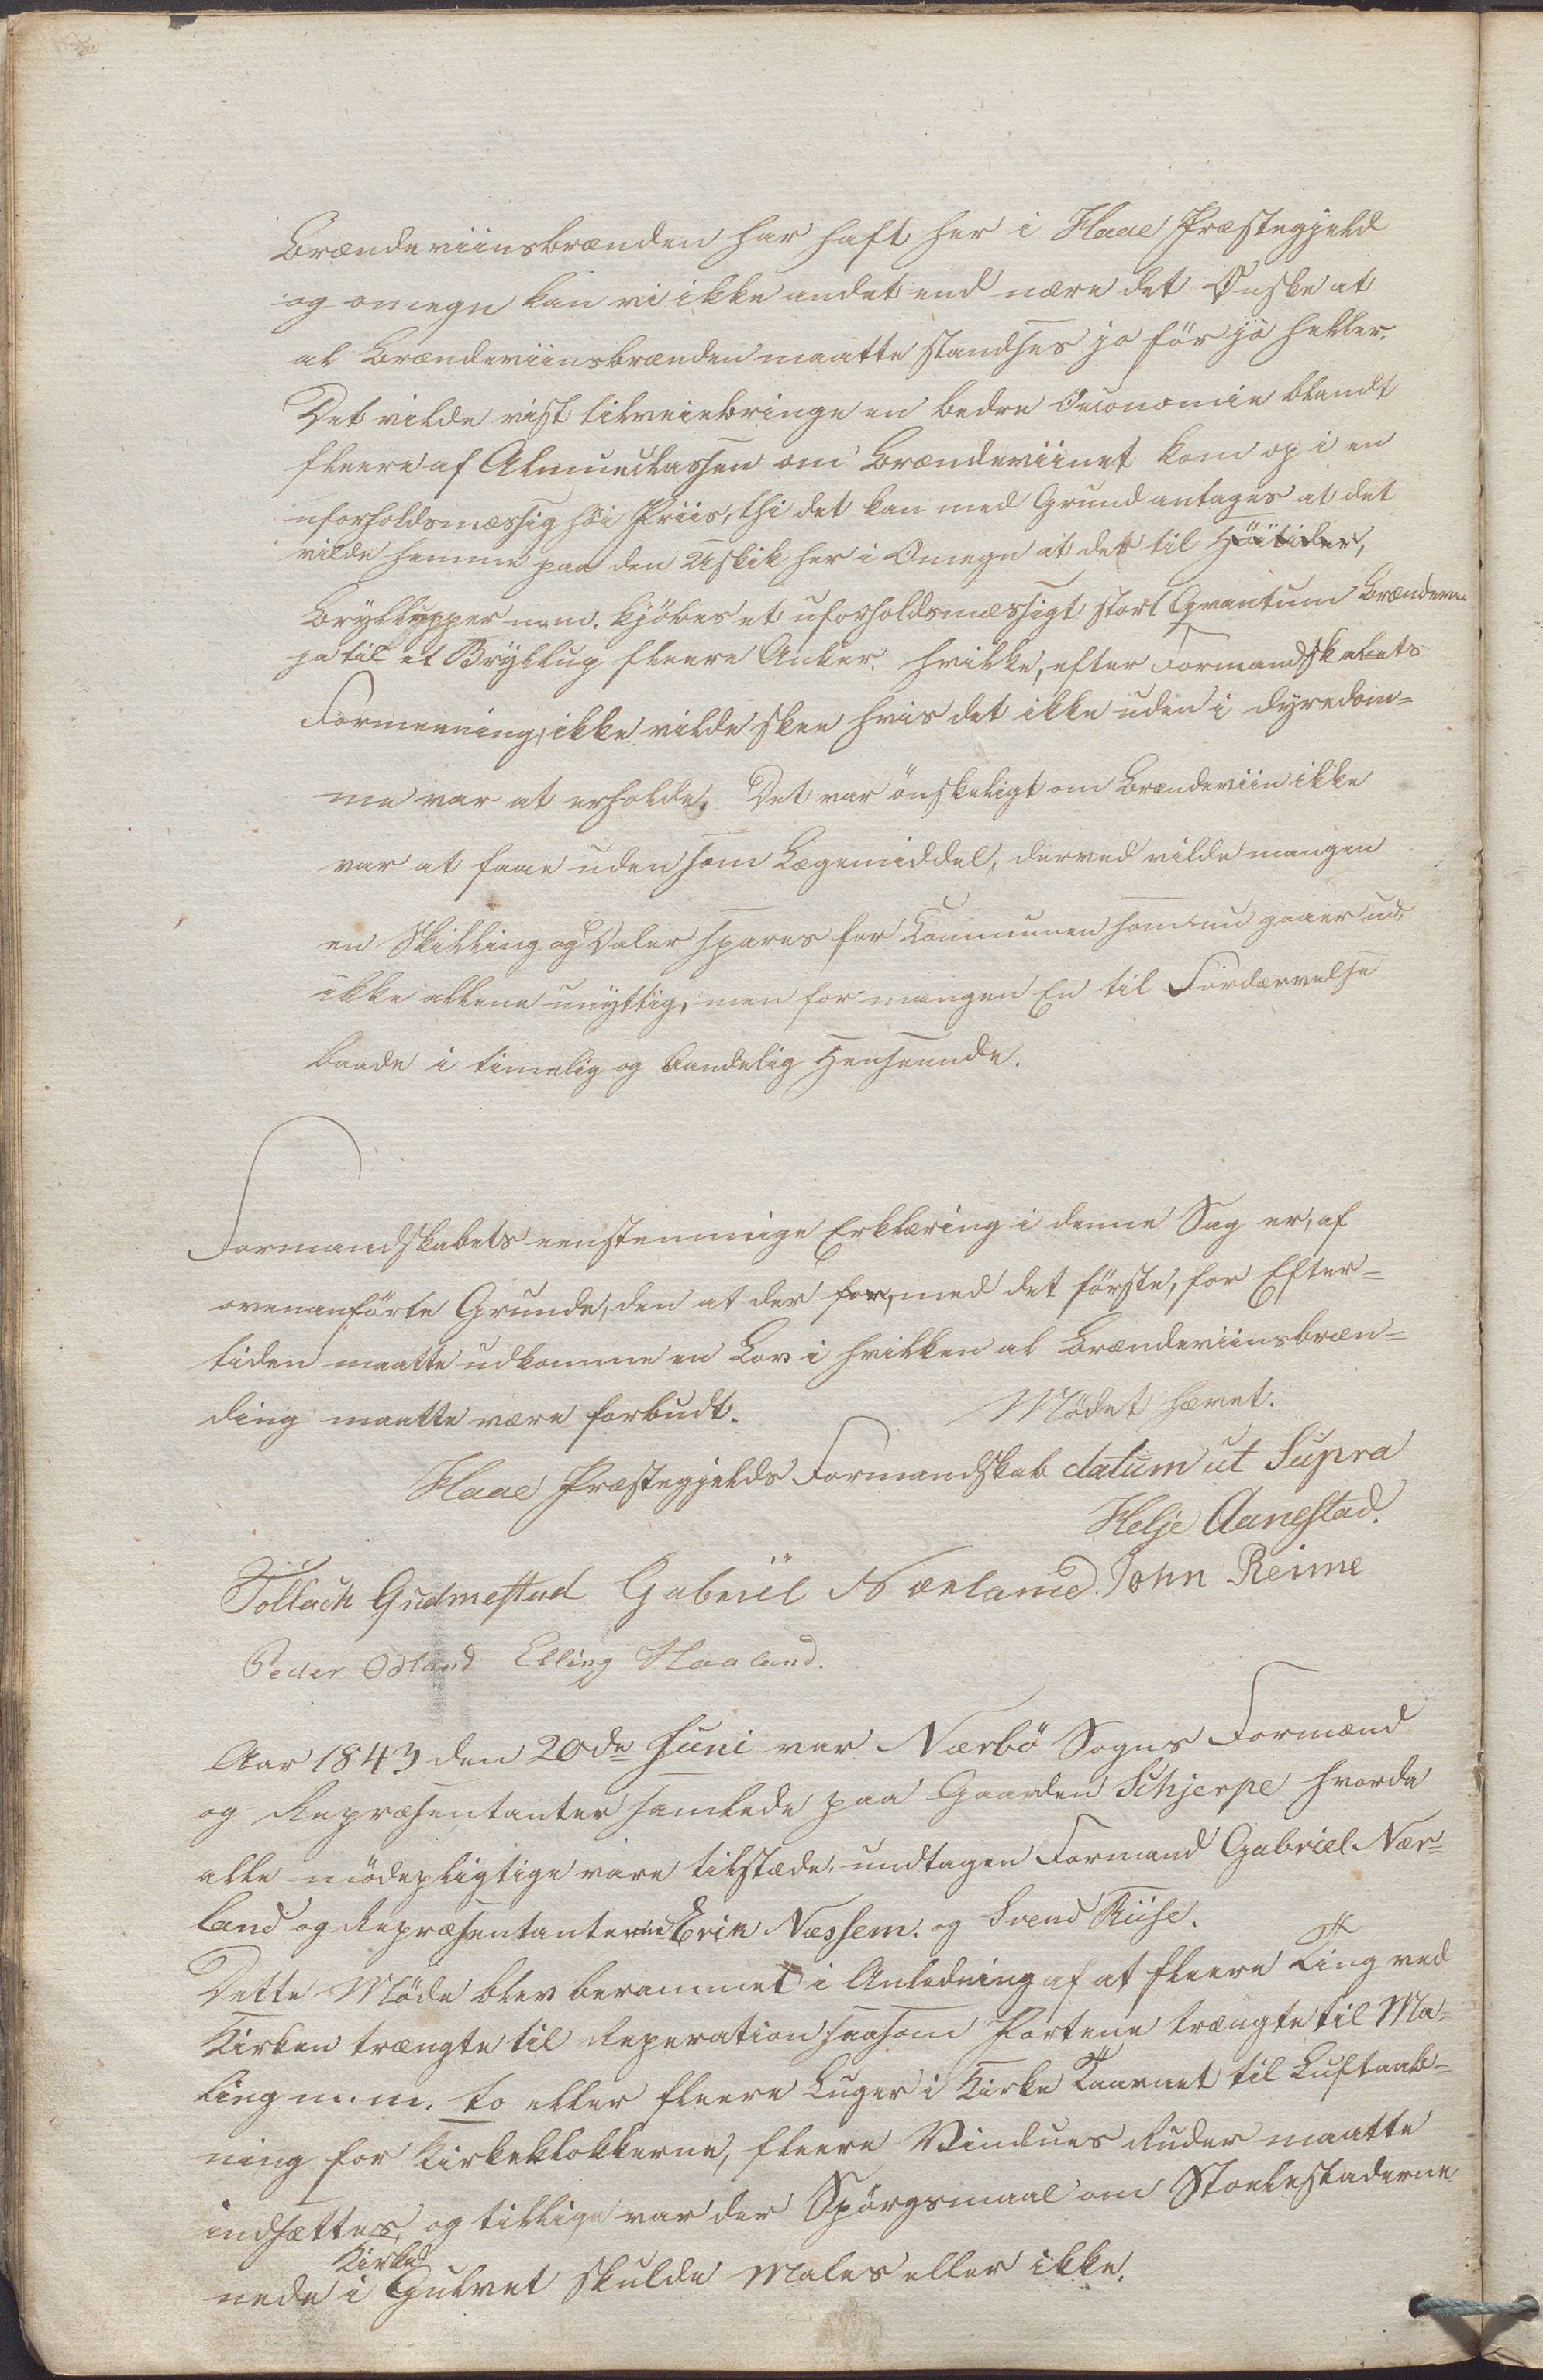 Brændeviinsbrænden har haft her i Haae Præstegjeld
og omegn kan vi ikke andet end nære det Ønske at
al Brændeviinsbrænden maatte standses jo før jo heller.
Det vilde vist tilveiebringe en bedre Oeconomie blandt
fleere af Almueclassen om Brændeviinet kom op i en
uforholdsmæssig høi Priis, thi det kan med Grund antages at det
vilde hemme paa den Uskik her i Omegn at der til Høitider,
Bryllupper m.m. kjøbes et uforholdsmæssigt stort Qvantum Brændev.
ja til et Bryllup fleere Anker. hvilke, efter Formandskabets
Formeening, ikke vilde skee hvis det ikke uden i dyredom-
me var at erholde. Det var ønskeligt om Brændeviin ikke
var at faae uden som Lægemiddel, derved vilde mangen
en Skilling og Daler spares for Communen som nu gaaer ud,
ikke allene unyttig, men for mangen En til Fordærvelse
baade i timelig og aandelig Henseende.
Formandskabets eenstemmige Erklæring i denne Sag er, af
ovenanførte Grunde, den at der for, med det første, for Efter-
tiden maatte udkomme en Lov i hvilken al Brændeviinsbræn-
ding maatte være forbudt. Mødet hævet.
Haae Præstegjelds Formandskab datum ut Supra
Helje Aanestad.
Tollach Gudmestad Gabriel Nærland. John Reime
Peder Ødland Elling Haaland.
Aar 1843 den 20de Juni var Nærbø Sogns Formænd
og Repræsentanter samlede paa Gaarden Schjerpe hvorda
alle mødepligtige vare tilstæde. undtagen Formand Gabriel Nær-
land og Repræsentanterne Erik Næssem. og Svend Riise.
Dette Møde blev berammet i Anledning af at fleere Ting ved
Kirken trængte til Reperation saasom Portene trængte til Ma-
ling m.m. to eller fleere Luger i Kirke Taarnet til Luftaab-
ning for Kirkeklokkerne, fleere Vindues Ruder maatte
indsættes, og tillige var der Spørgsmaal om Stolestaderne
Kirke
nede i Gulvet skulde Males eller ikke.